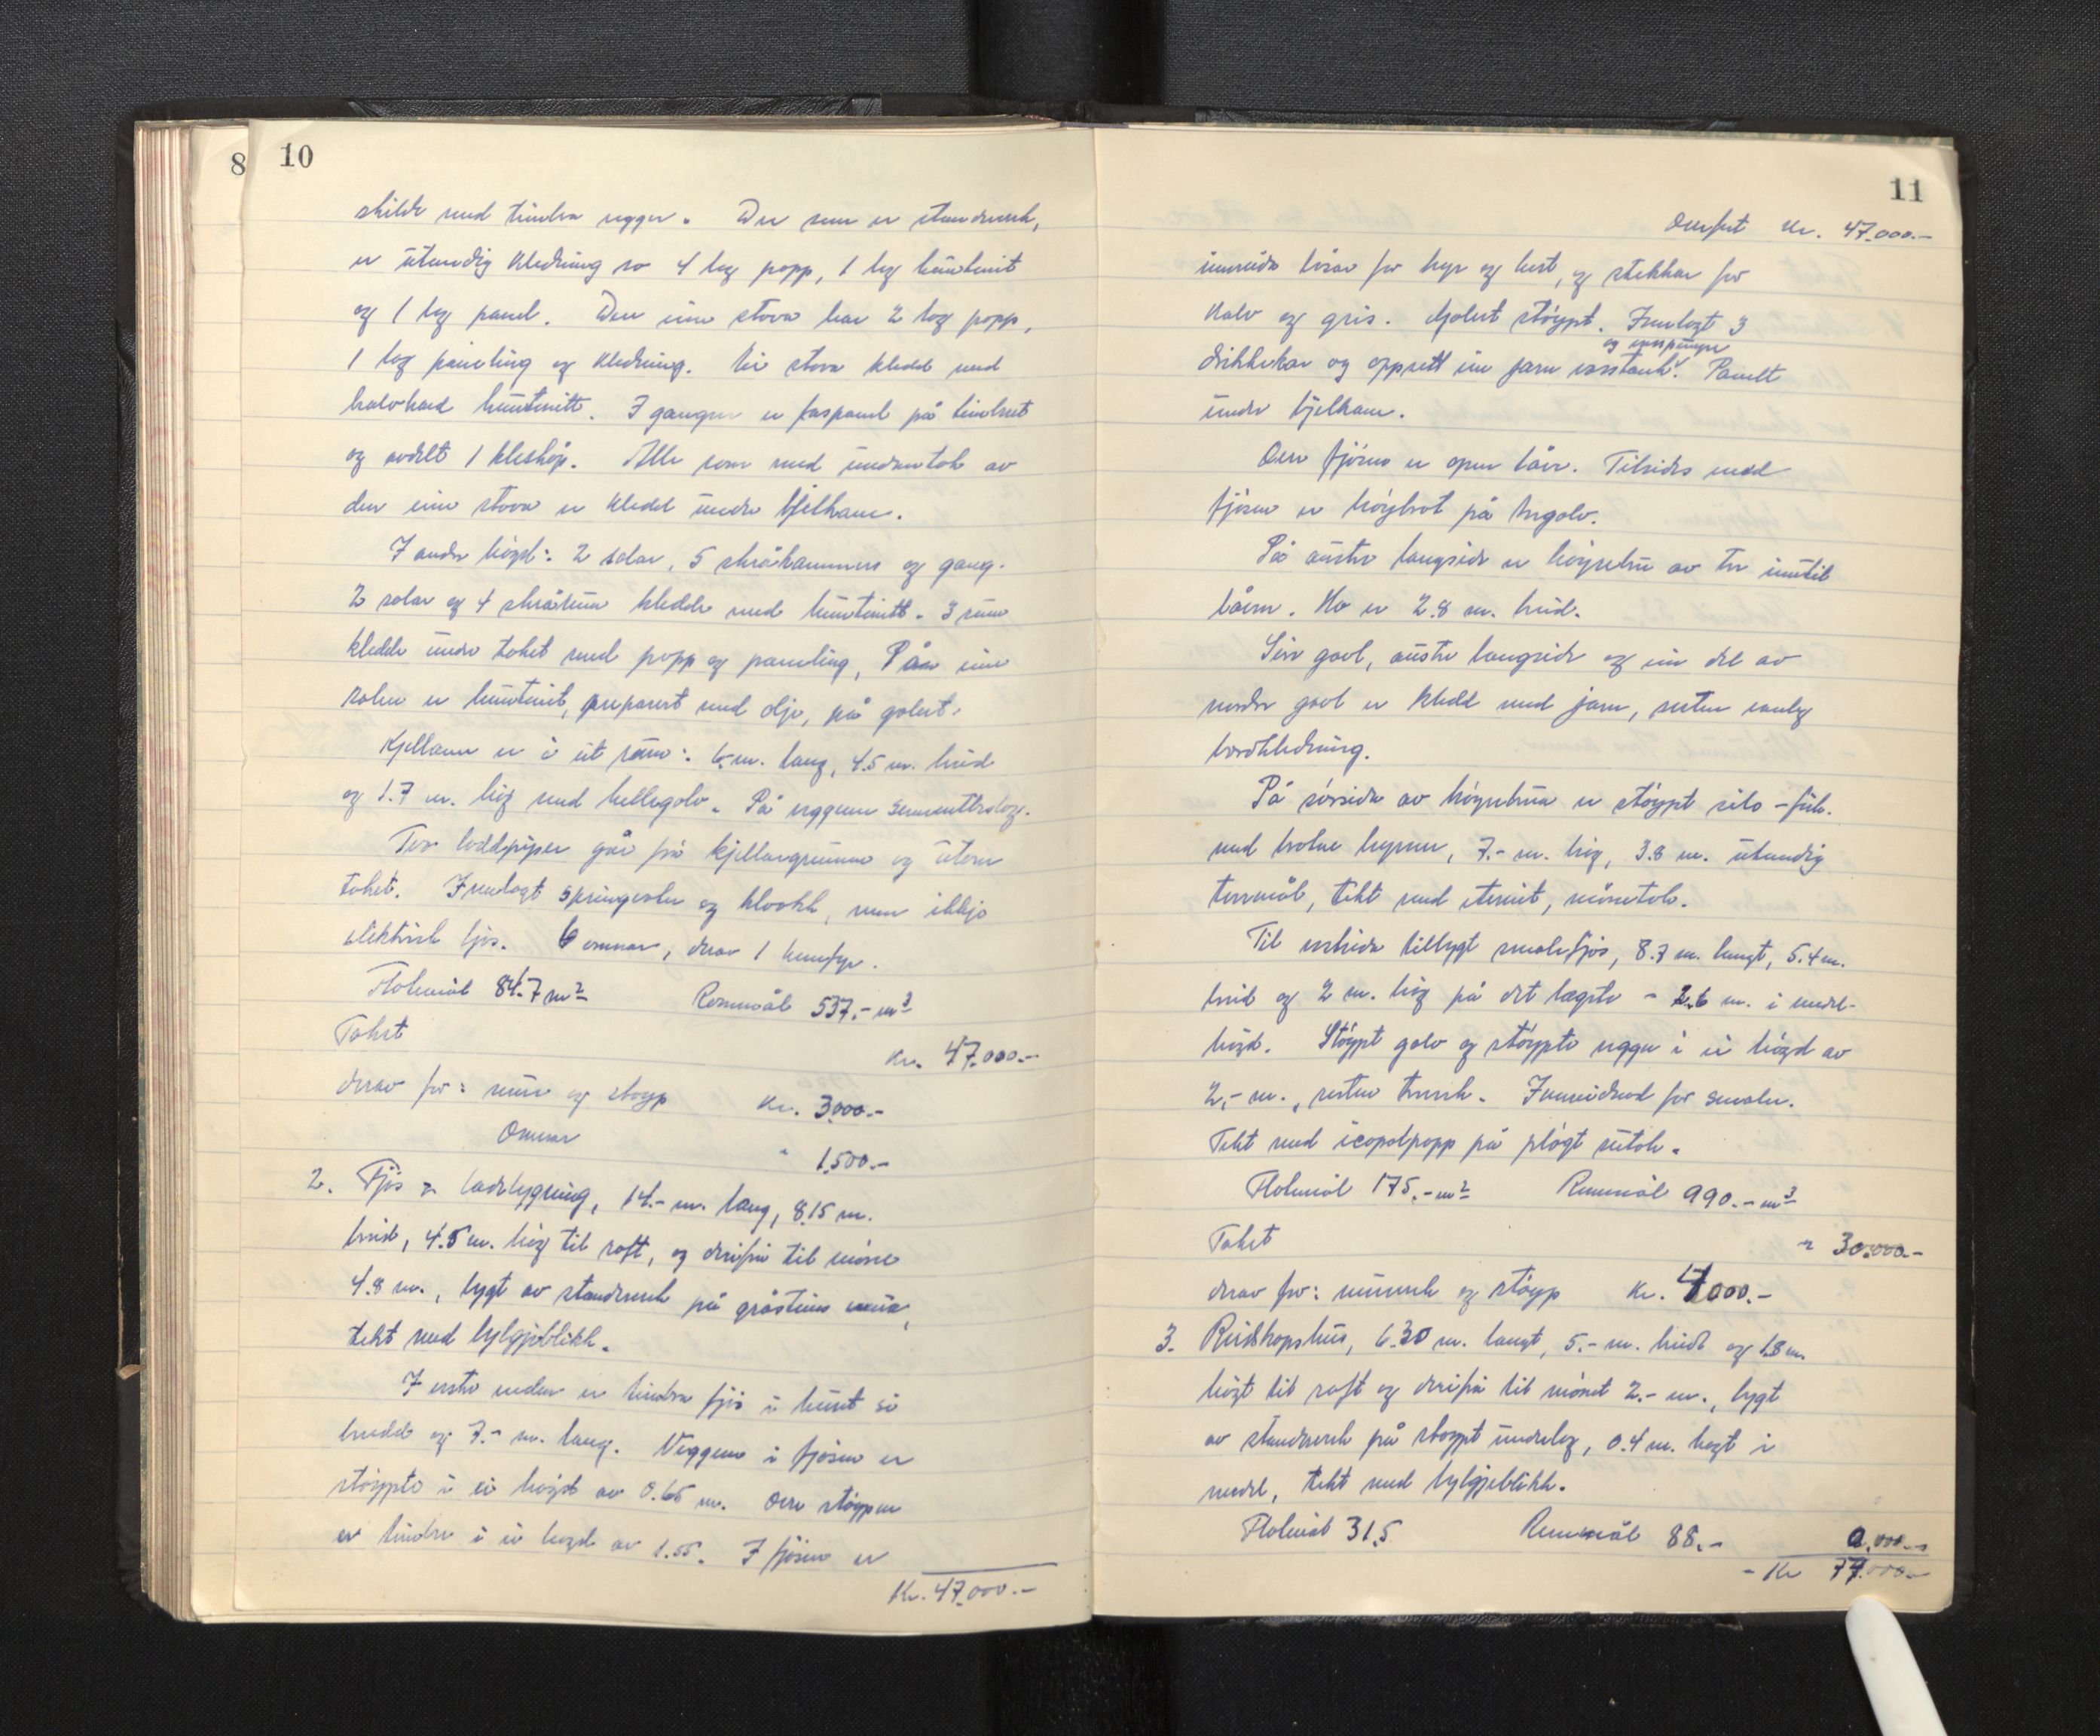 8
10
skilde med timbra vegger. Der som er standverk,
er utvendig kledning so 4 lag papp, 1 lag huntonit
og 1 lag panel. Den eine stova har 2 lag papp,
1 lag paneling og kledning. Ei stova kledd med
halvhard huntonitt. I gangen er faspanel på timbret
og avdelt 1 kleskåp. Alle rom med undantak av
den eine stova er kledd under bjelkane.
I andre högd: 2 salar, 5 skråkammers og gang.
2 salar og 4 skråruna kledde med huntonitt. 3 rum
kledde under taket med papp og paneling, På en eine
salen er huntonit, preparert med olje, på golvet.
Kjellaren er i eit rum: 6.- m. lang, 4.5 m. breid
og 1.7 m. høg med hellegolv. På veggene sementbeslag.
Two loddpiper går frå kjellargrunnen og utover
taket. Innlagt springvatn og kloakk, men ikkje
elektrisk ljos. 6 omnar, derav 1 komfyr.
Flatemål 84.7 m² Rommål 537.- m³
Takst kr. 47.000.-
derav for: mur og støyp kr. 3.000.-
Omnar " 1.500.-
2. Fjos & ladebygning, 14.- m. lang, 8.15 m.
breid, 4.5 m. høg til raft, og derifrå til møne
4.8 m., bygt av standverk på gråsteins mur,
tekt med bylgjeblikk.
I vestre enden er timbra fjos i huset si
breidd og 7.- m. lang. Veggene i fjosen er
støypte i ei høgd av 0.65 m. Over støypen
er timbra i ei høgd av 1.55. I fjosen er
Kr. 47.000.-
11
Overført Kr. 47.000.-
innreidde båsar for kyr og hest, og stekkar for
kalv og gris. Golvet støypt. Innlagt 3
og vasspumpe
drikkekar og oppsett ein jarn vasstank. Panelt
under bjelkane.
Over fjosen er open låve. Tilsides med
fjosen er høybrot på tregolv.
På austre langside er høybru av tre inntil
låven. Ho er 2.8 m. breid.
Søre gavl, austre langside og ein del av
nordre gavl er kledd med jarn, resten vanleg
bordkledning.
På sørsida av høybrua er støypt silo-
med brotne hyrner, 7.- m. høg, 3.8 m. utvendig
tverrmål, tekt med eternit, mønetak.
Til vestsida tilbygt smalefjos, 8.7 m. langt, 5.4 m.
breid og 2 m. høg på det lægste - 2.6 m. i medel-
høgd. Støypt golv og støypte vegger i ei høgd av
2.- m., resten treverk. Innreidned for smalen.
Tekt med icopalpapp på pløgt sutak.
Flatemål 175.- m² Rommål 990.- m³
Takst " 30.000.-
derav for: murverk og støyp kr. 7.000.-
3. Reidskapshus, 6.30 m. langt, 5.- m. breidt og 1.8 m.
høgt til raft og derifrå til mønet 2.- m., bygt
av standverk på støypt underlag, 0.4 m. høgt i
medel, tekt med bylgjeblikk.
Flatemål 31.5 Rommål 88.-
- Kr